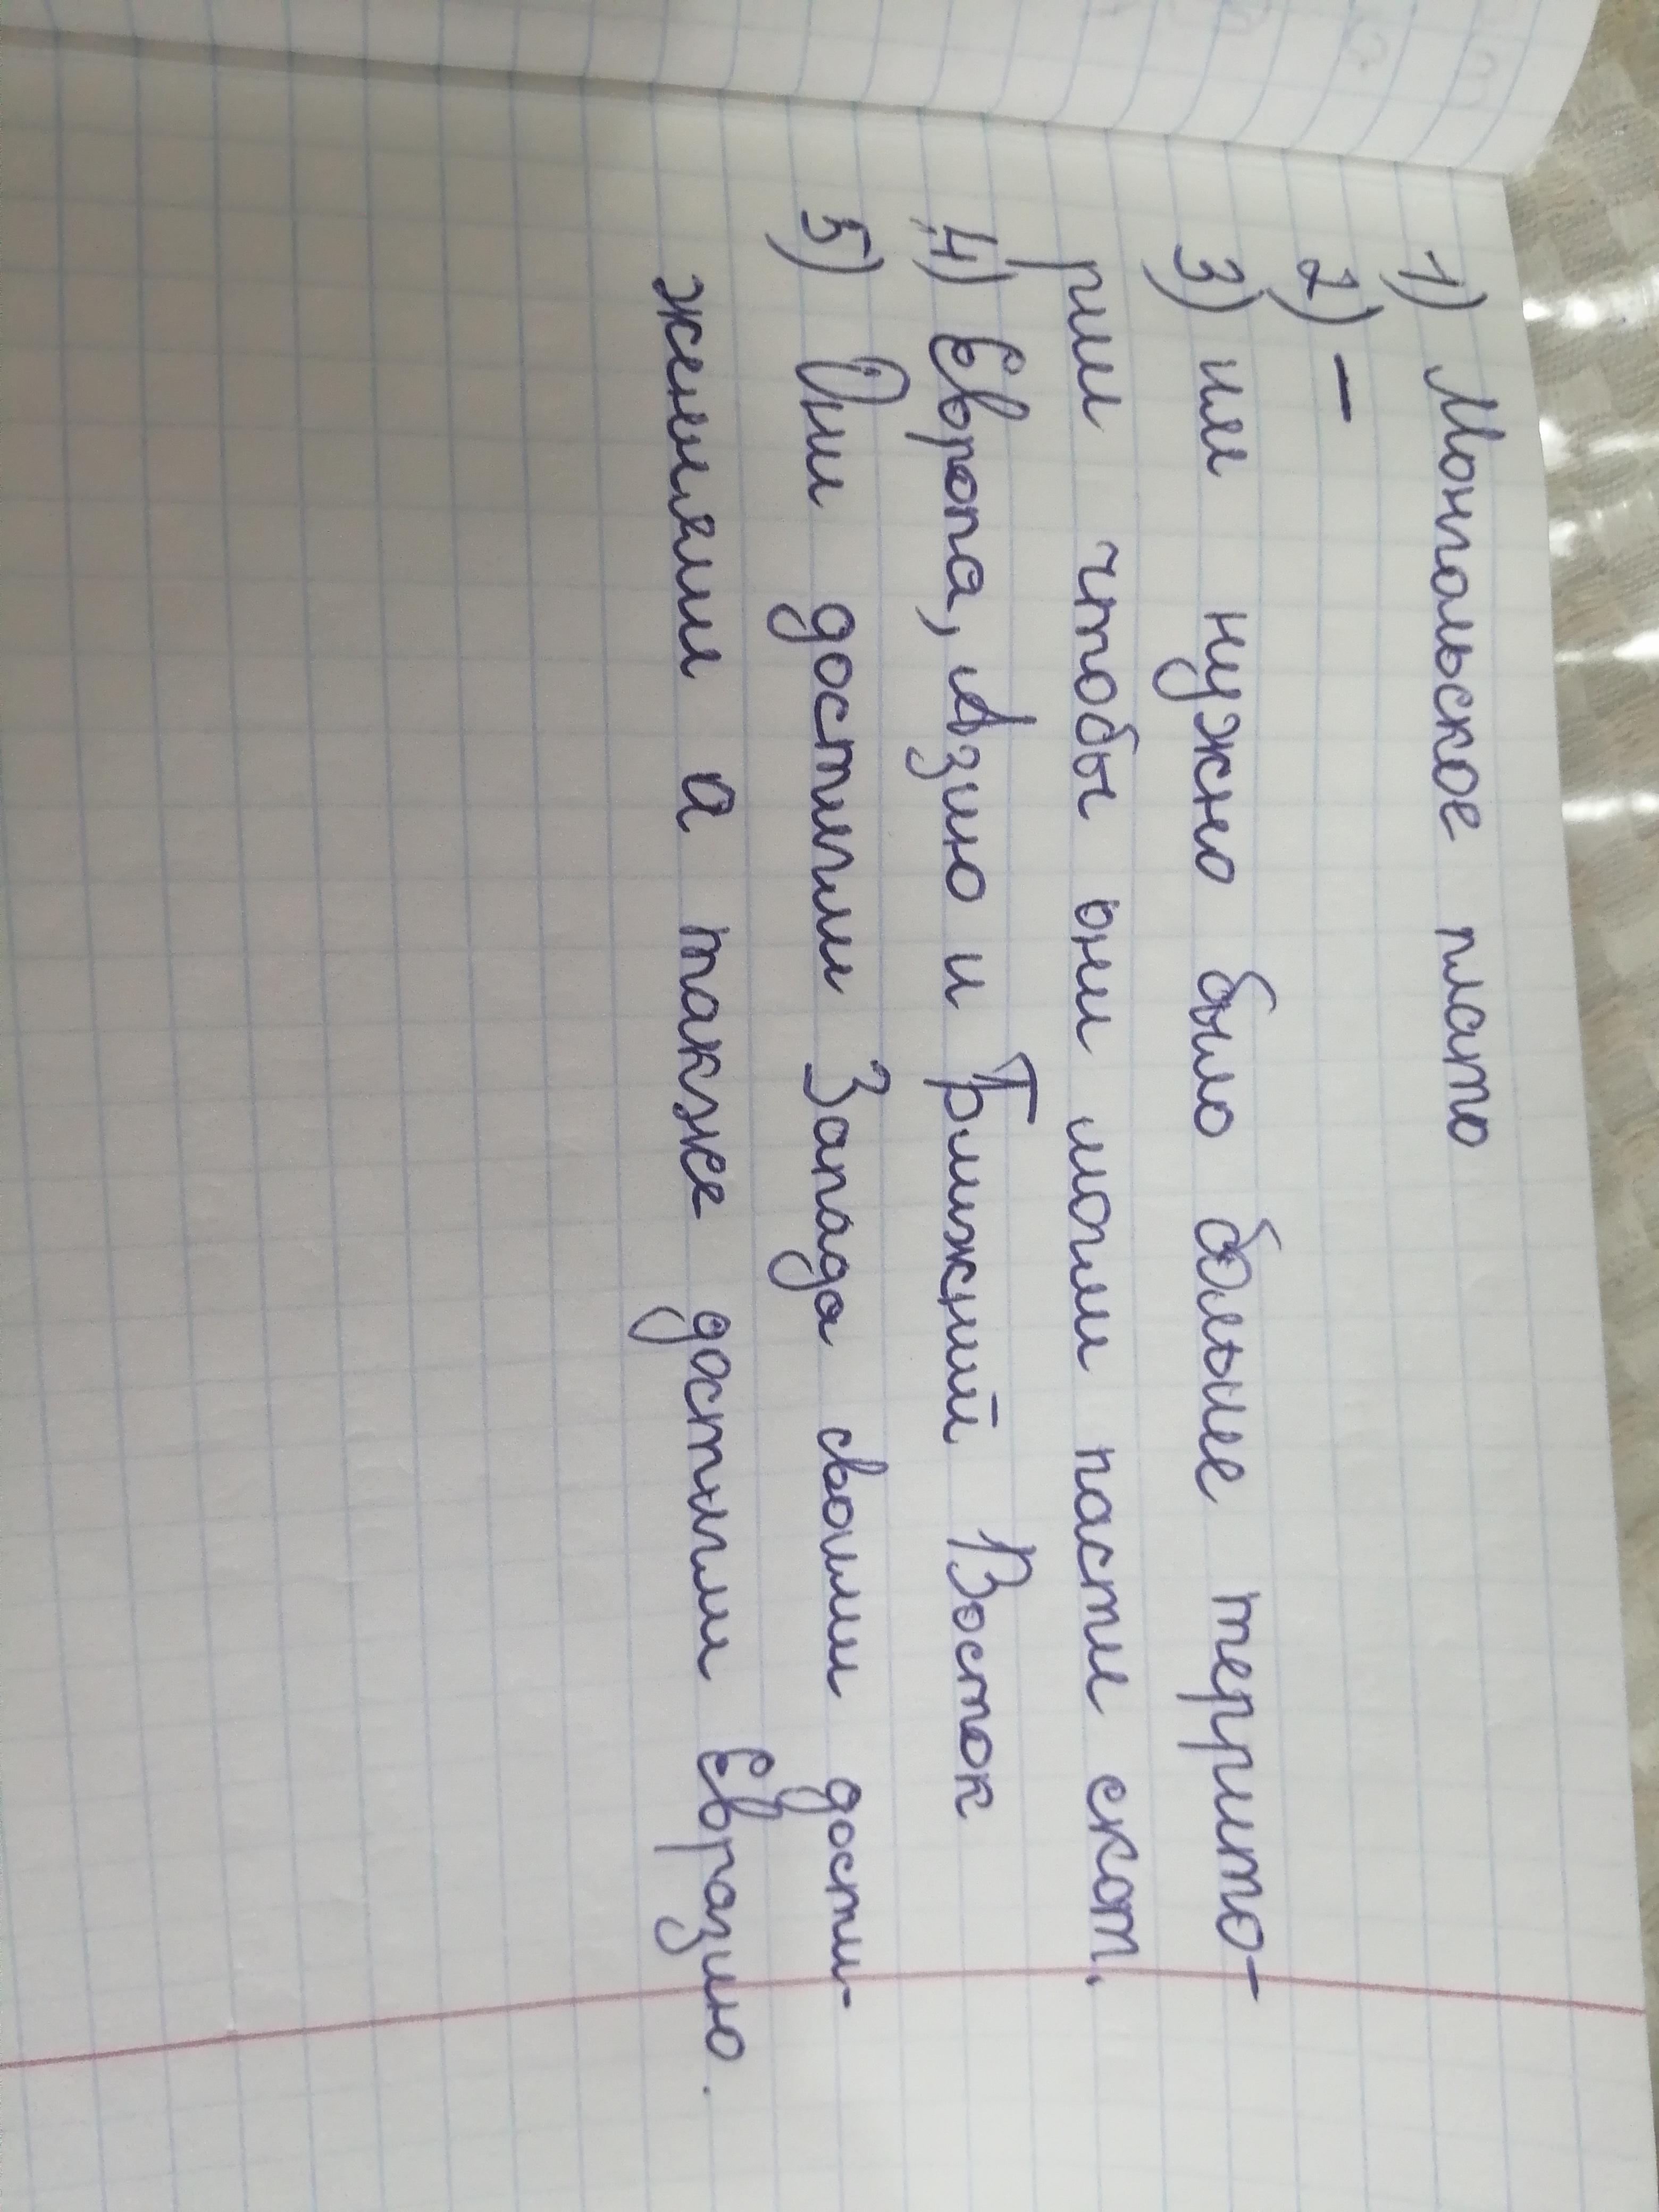 1) Монгольское плато
2) –
3) им нужно было больше террито-
рии чтобы они могли пасти скот.
4) Европа, Азию и Ближний Восток
5) Они достигли Запада своими дости-
жениями а также достигли Евразию.